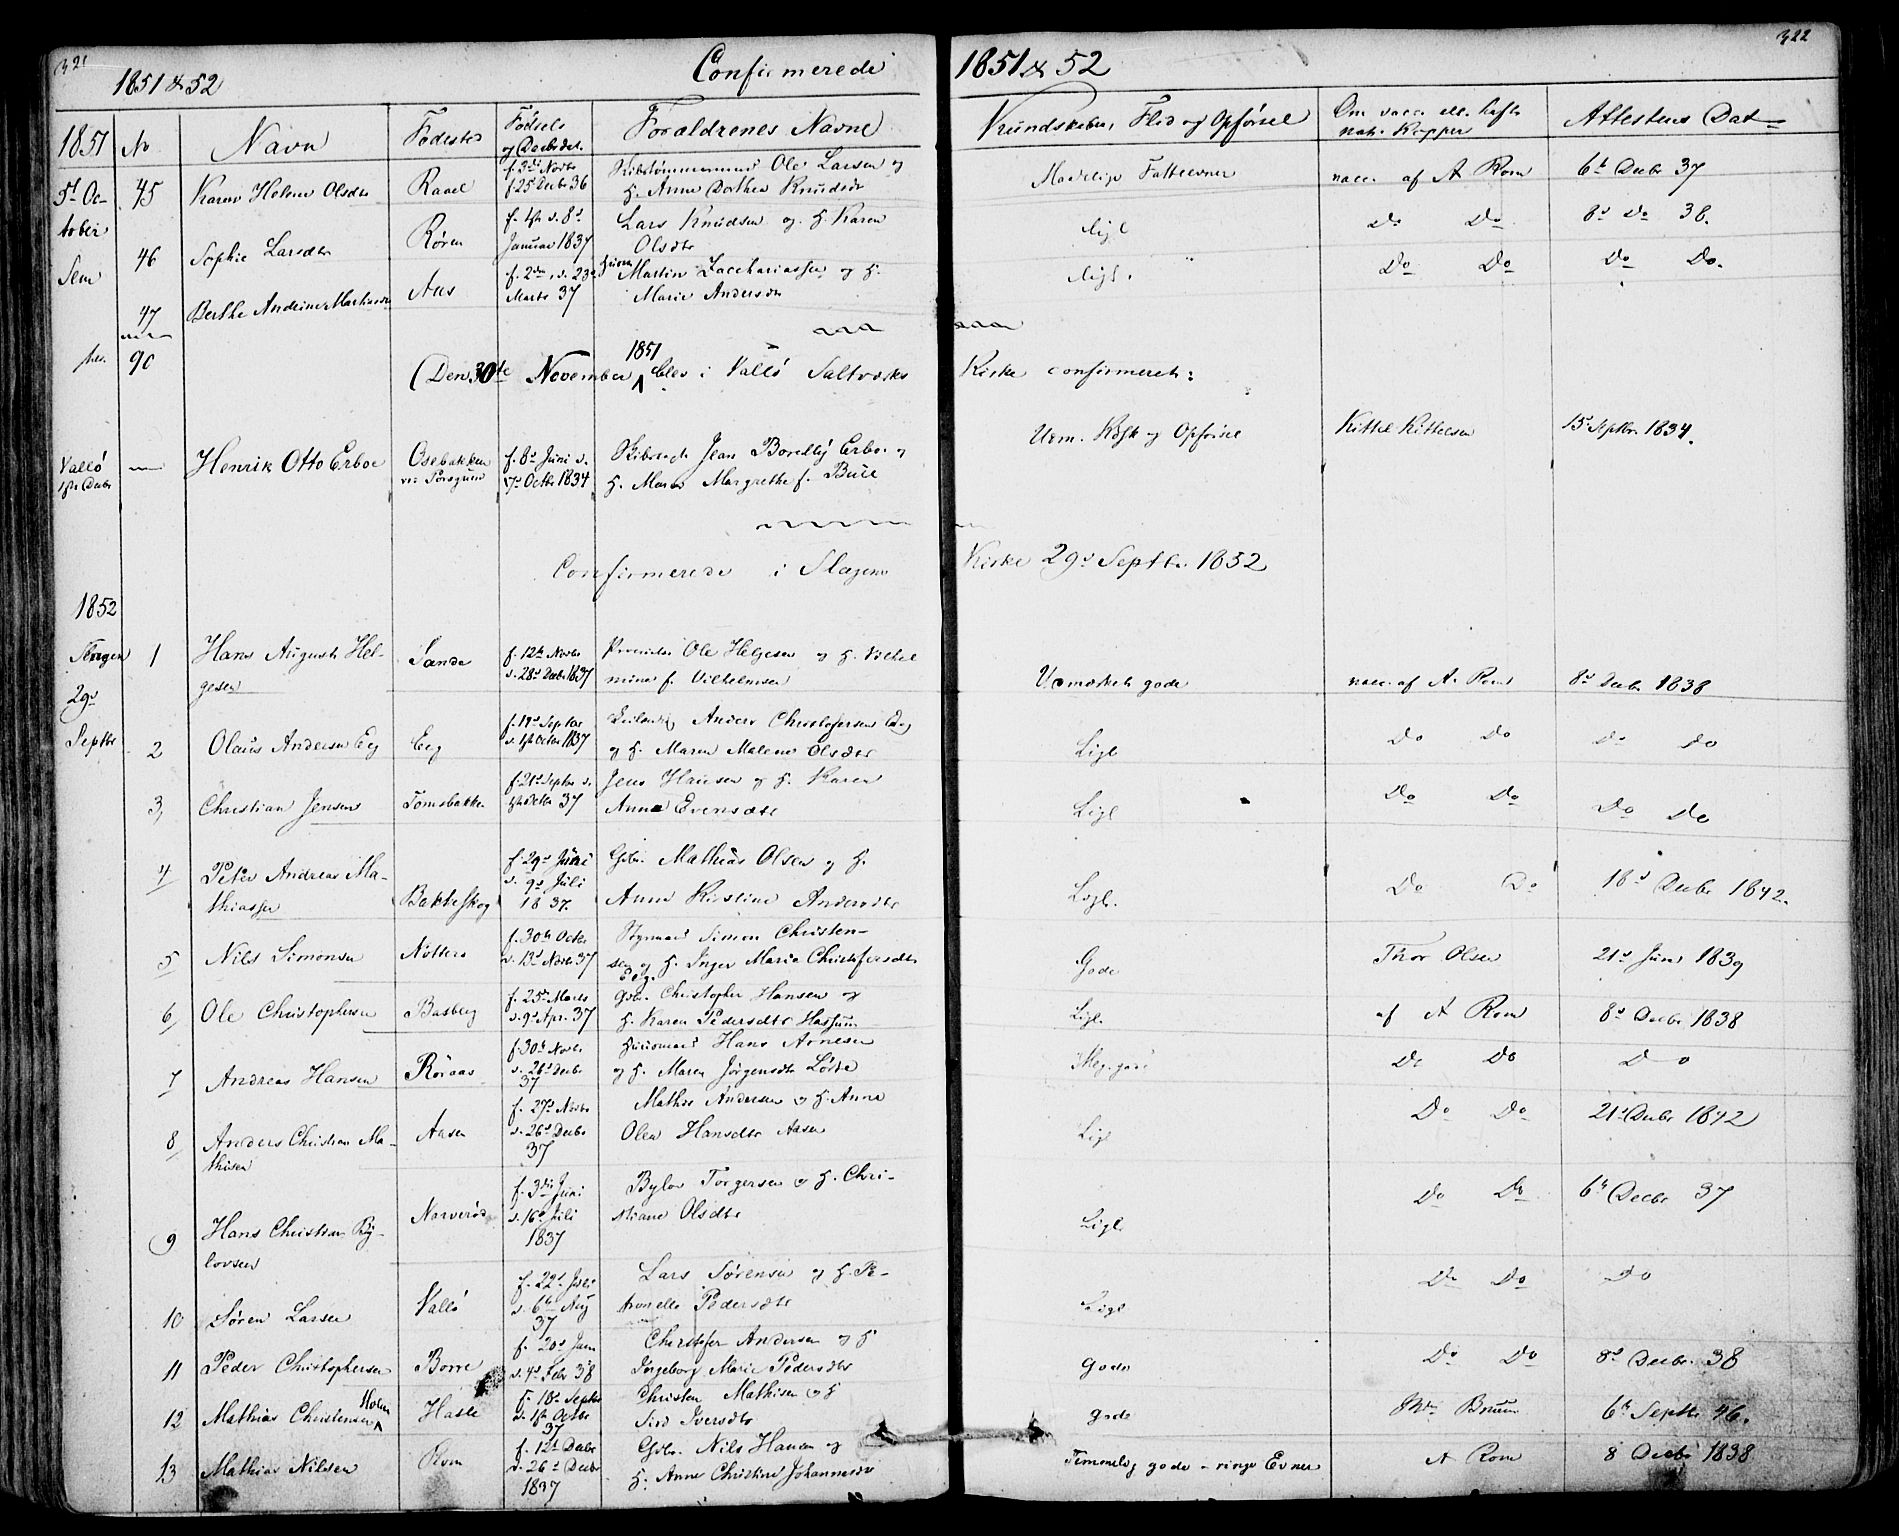 321
1851 & 52 Confirmerede 1851 & 52
322
1851 No Navn Fødested Fødsels og Daabsdat. Forældrenes Navne Kundskaber, Flid og Opførsel Om vacc. ell. hafte nat. Kopper Attestens Dat
5t Oc- 45 Karen Helene Olsdtr Raael f. 3die Novbr f. 25 Decbr 36 Ole Larsen og
H. Anne Dorthea Knudsdtr Maadelige Fatteevner vacc. af A Rom 6t Decbr 37
tober
46 Sophie Larsdtr Røren Januar 1837 Lars Knudsen og H. Karen
Olsdtr Ligl Do Do 8d Do 38.
Slem
47 Berthe Andrine Aas Marts 37 Martin Zacchariassen og H.
Marie Andersdtr Ligl. Do Do Do Do.
90
(Den 30te November 1851 blev i Vallö Saltværks Kirke confirmeret:
Vallö Henrik Otto Erboe Osebakken v: Porsgrund f. 8d Juni d. 7d Octbr 1834 Jean Erboe og
H. Maren Margrethe f. Bull Opførsel Kittel Kittelsen 15 Septbr. 1834.
Confirmerede i Slagens Kirke 29d Septbr. 1852
1852
Slagen 1 Hans August Hel-
gesen Sande f. 12te Novbr d. 28d Decbr 1837 Ole Helgesen og H. Vilhel
mine f. Vilhelmsen Udmærket gode vacc. af A. Rom 8d Decbr 1838
29d
Septbr 2 Olaus Andersen Eeg Eeg f. 19d Septbr d. 1ste October 1837 Anders Christofersen Eeg
og H. Maren Malene Olsdtr Ligl Do Do Do Do
3, Christian Jensen Tomsbakken f. 21d Septbr d. Octbr 37 Jens Hansen og H. Karen
Anne Evensdtr Ligl Do Do Do Do
4 Peter Andreas Ma-
thiassen Bakkeskog f. 29d Juni d. 9d Juli 1837. Gbr. Mathias Olsen og H.
Anne Kirstine Andersdtr Ligl. Do Do 18d Decbr 1842.
5 Nils Simonsen Nötterö f. 30te Octbr d. 13d Novbr 37 Simon Christen-
sen og H. Inger Maria Christofersdtr
Eeg. Gode Thor Olsen 21d Juni 1839
6 Ole Christophersen Basberg f. 25de Marts d. 9d Apr. 37 Gbr. Christopher Hansen og
H. Karen Pedersdtr Hassum Ligl. af A Rom 8d Decbr 1838
7 Andreas Hansen Röraas f. 30te Novbr d. 26d Decbr 37 Huusmand Hans Arnesen
og H. Maren Jörgensdtr Meg. gode Do Do Do
8 Anders Christian Ma-
thisen Aasen f. 27d Novbr d. 26d Decbr 37 Mathis Andersen og H. Anne
Olea Hansdtr Aasen Ligl Do Do 21d Decbr 1842
9 Hans Christian By-
lovsen Narverød f. 3die Juni d. 16d Juli 1837 Bylov Torgersen og H. Chri-
stiane Olsdtr Ligl. Do Do 6te Decbr 37
10 Sören Larsen Vallö f. 22d Juli d. 6te Aug 37 Lars Sörensen og H. Pe-
tronelle Pedersdtr Ligl Do Do Do
11 Peder Christophersen Borre f. 20d Jan d. 4d Febr 38 Christofer Andersen og H
Ingeborg Marie Pedersdtr gode Do Do 8d Decbr. 38
12 Mathias Christensen Holm Hasle f. 18d Septbr d. 1ste Octbr 37 Christen Mathisen og H
Siri Iversdtr gode Bruun 6te Septbr 46.
13 Mathias Nilsen Rom f. 12te Decbr d. 26d Decbr 1837 Gbr. Nils Hansen og
H. Anne Christine Johannesdtr Temmelig gode - ringe Evner A Rom 8 Decbr 1838